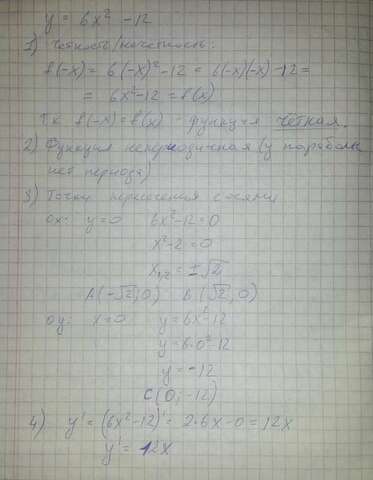 y = 6x² - 12
1) Четность/нечетность:
f(-x) = 6(-x)² - 12 = 6(-x)(-x) - 12 =
= 6x² - 12 = f(x)
Т.к f(-x) = f(x) - функция четная.
2) Функция непериодичная (у параболы
нет периода)
3) Точки пересечения с осями
ox: y = 0 6x² - 12 = 0
x² - 2 = 0
x₁,₂ = ±√2
A(-√2; 0) B(√2; 0)
oy: x = 0 y = 6x² - 12
y = 6·0² - 12
y = -12
C(0; -12)
4) y' = (6x² - 12)' = 2·6x - 0 = 12x
y' = 12x